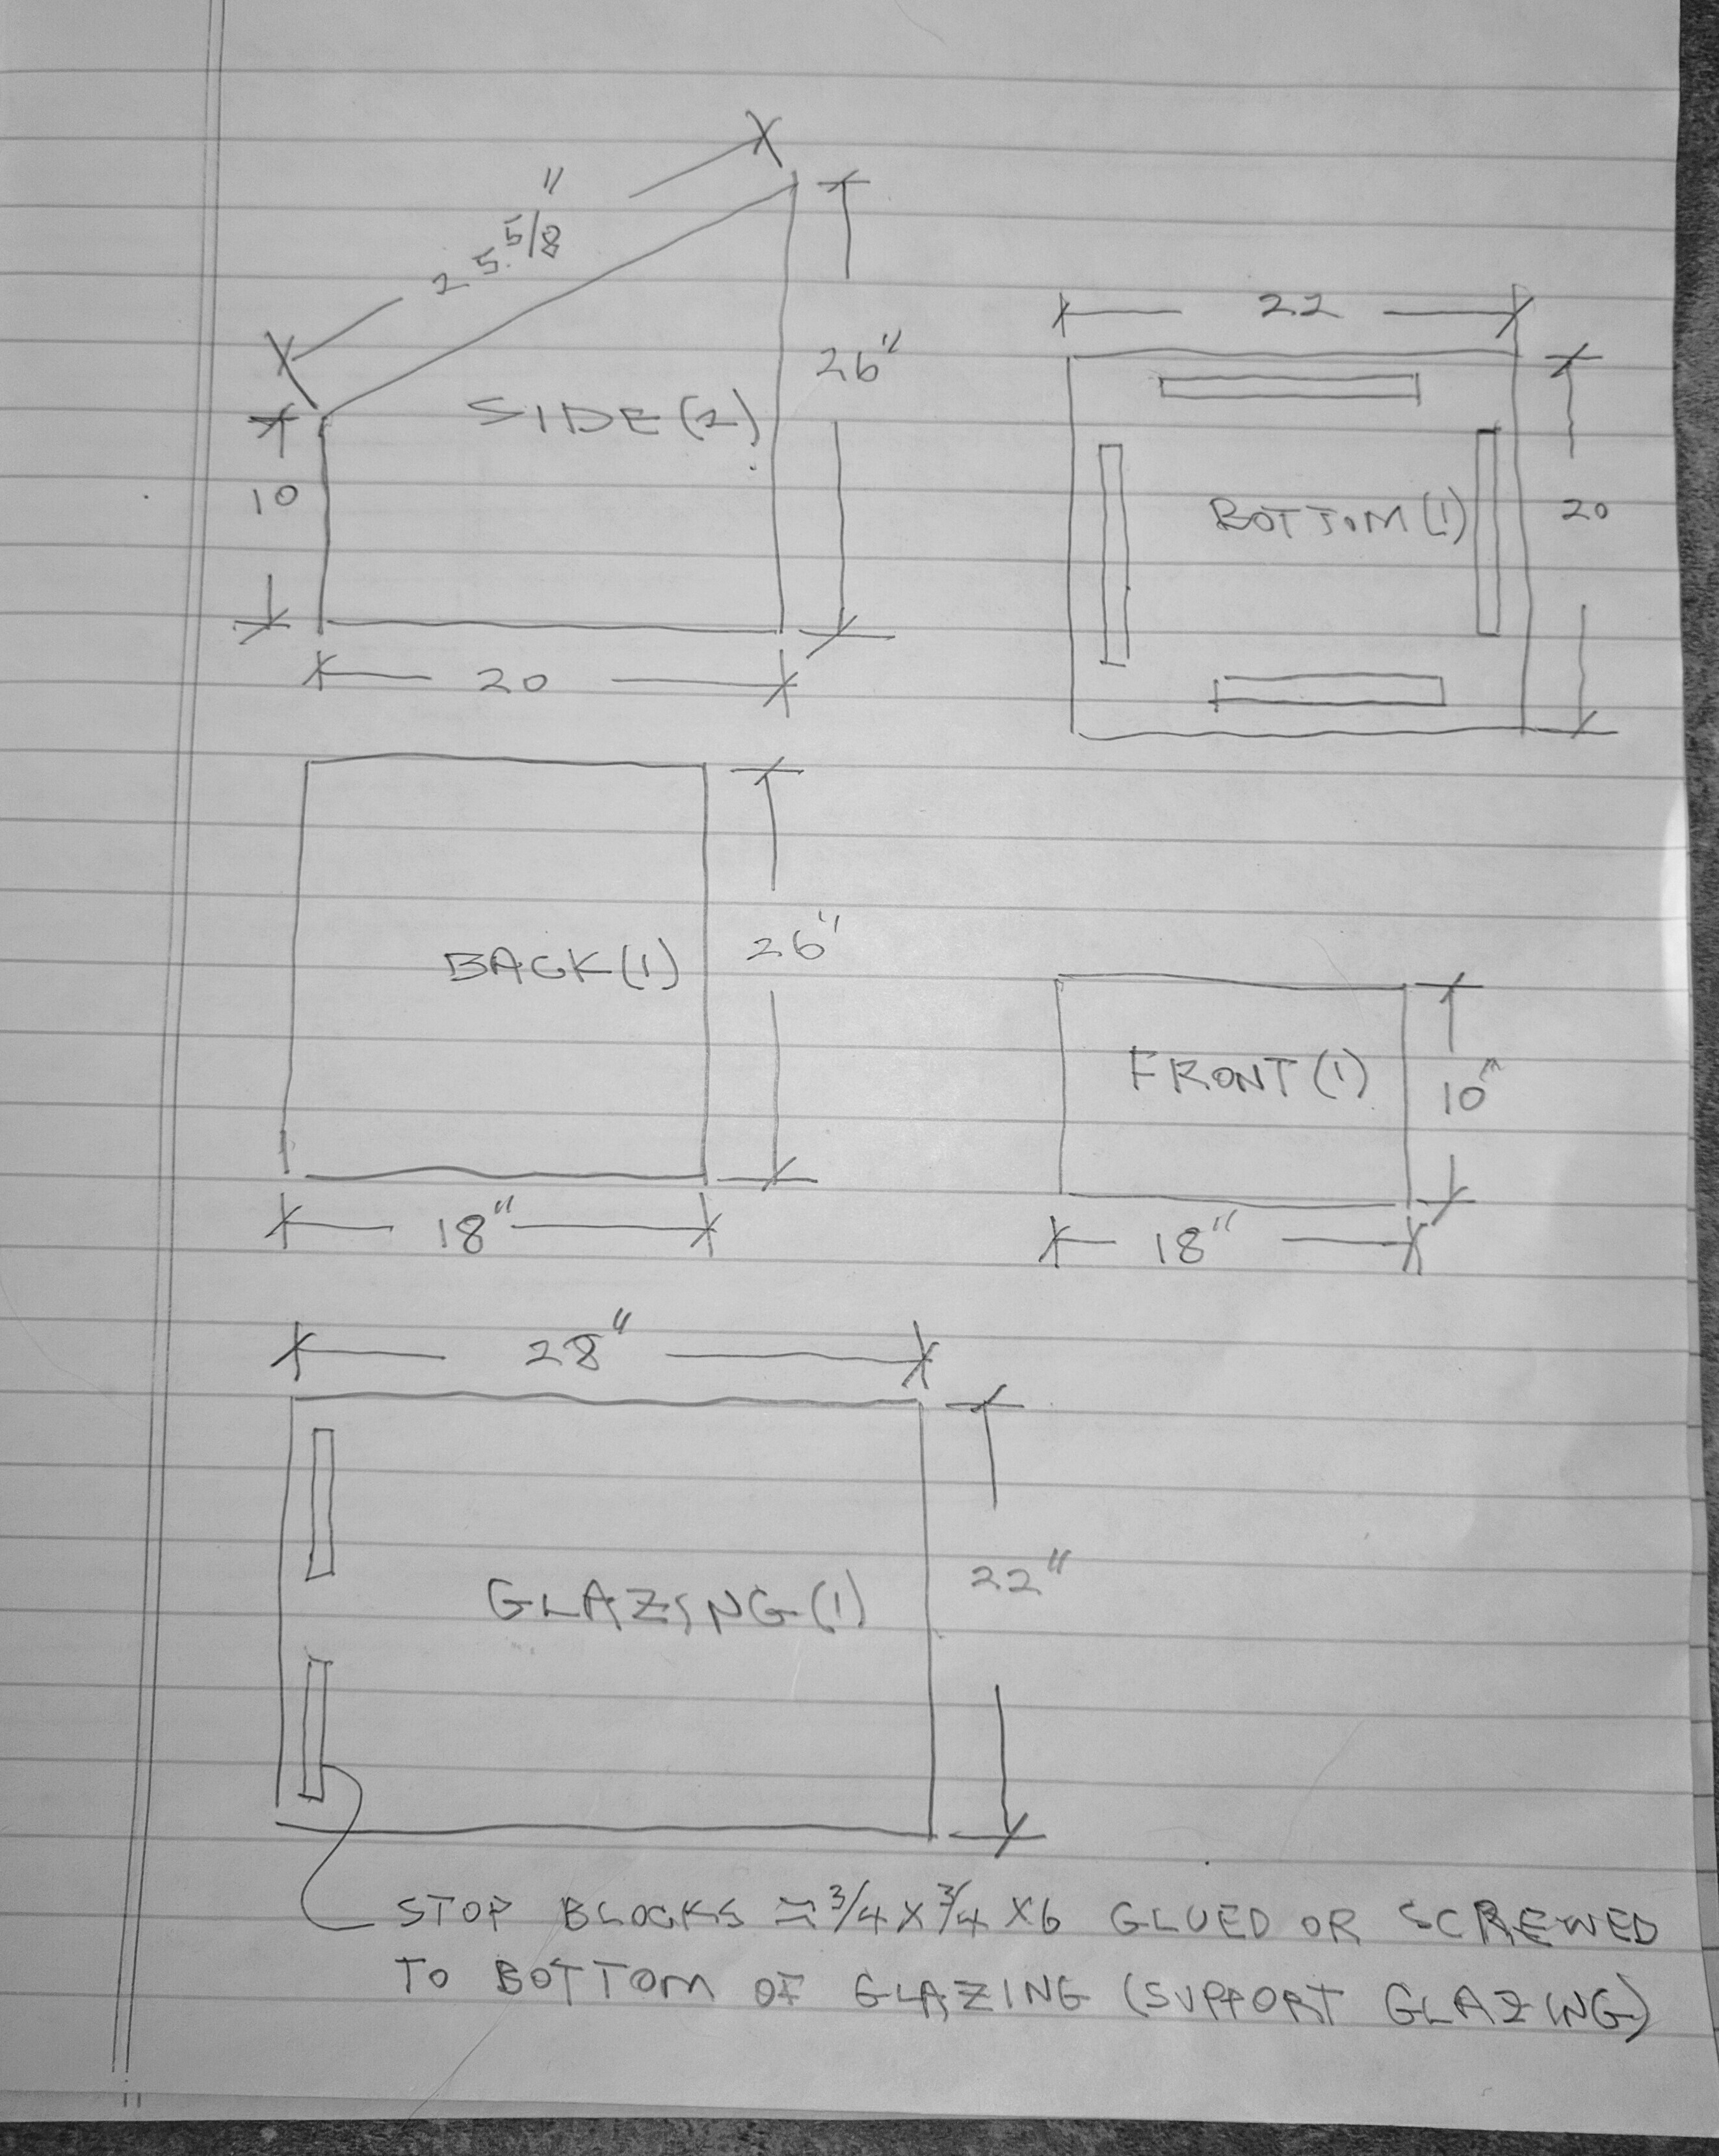 25 5/8"
26"
SIDE (2)
10
20
22
BOTTOM (1)
20
BACK (1)
26"
18"
FRONT (1)
10"
18"
28"
GLAZING (1)
22"
STOP BLOCKS ≈ 3/4 X 3/4 X 6 GLUED OR SCREWED
TO BOTTOM OF GLAZING (SUPPORT GLAZING)